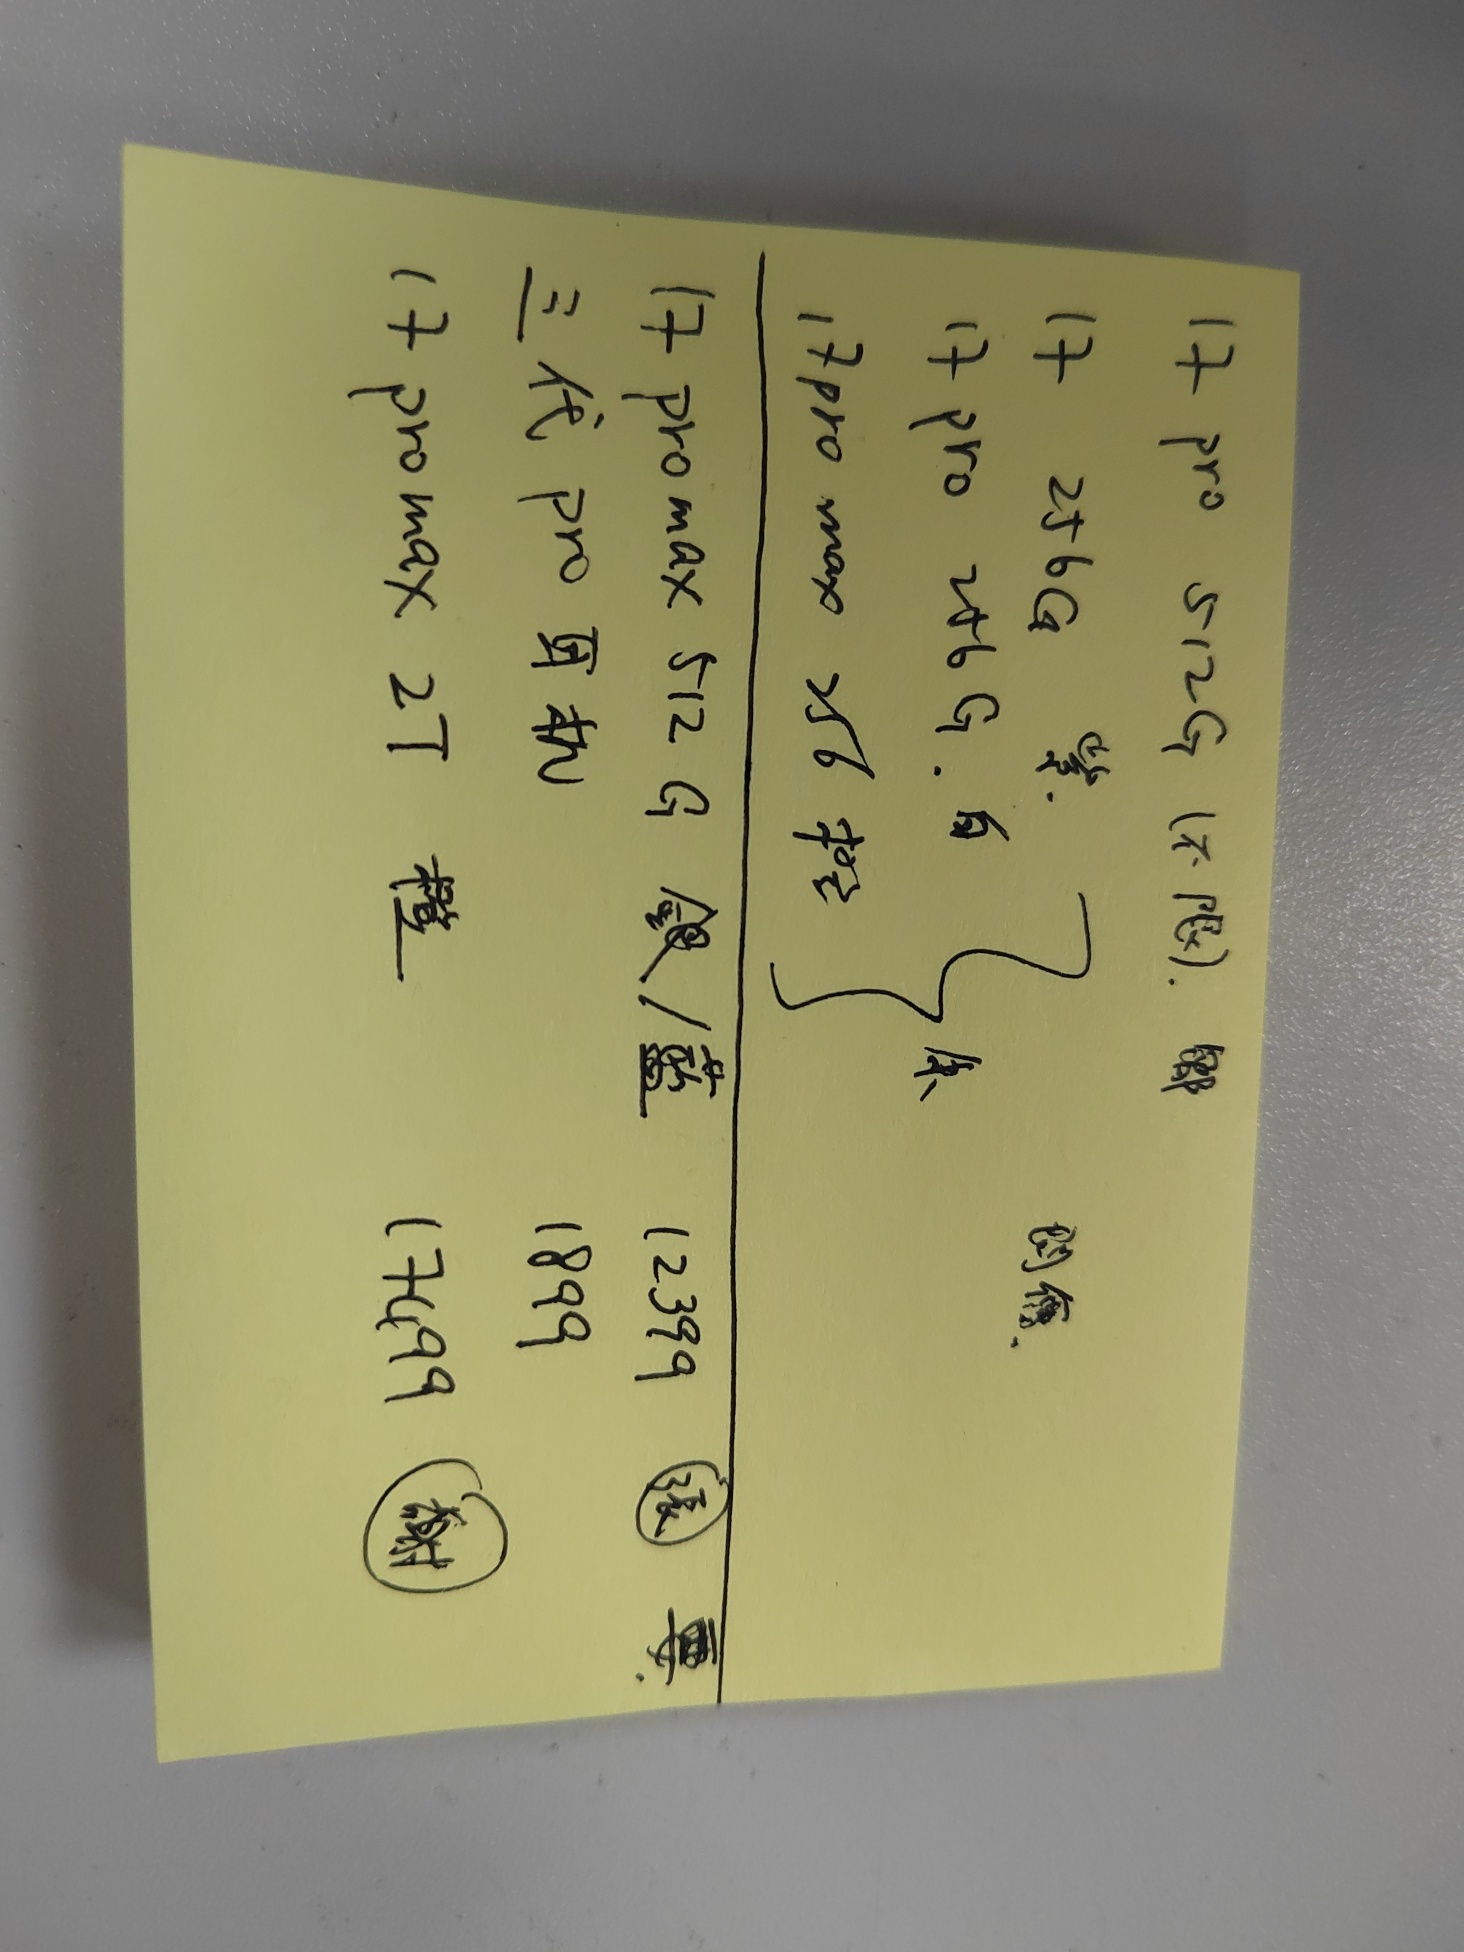 17 pro 512G (不限). 鄒
17 256G 紫.
17 pro 256G. 白
問價.
17 pro max 256 橙
余
17 pro max 512G 銀/藍 12399 張 要.
三代 pro 耳机 1899
17 pro max 2T 橙 17499 謝